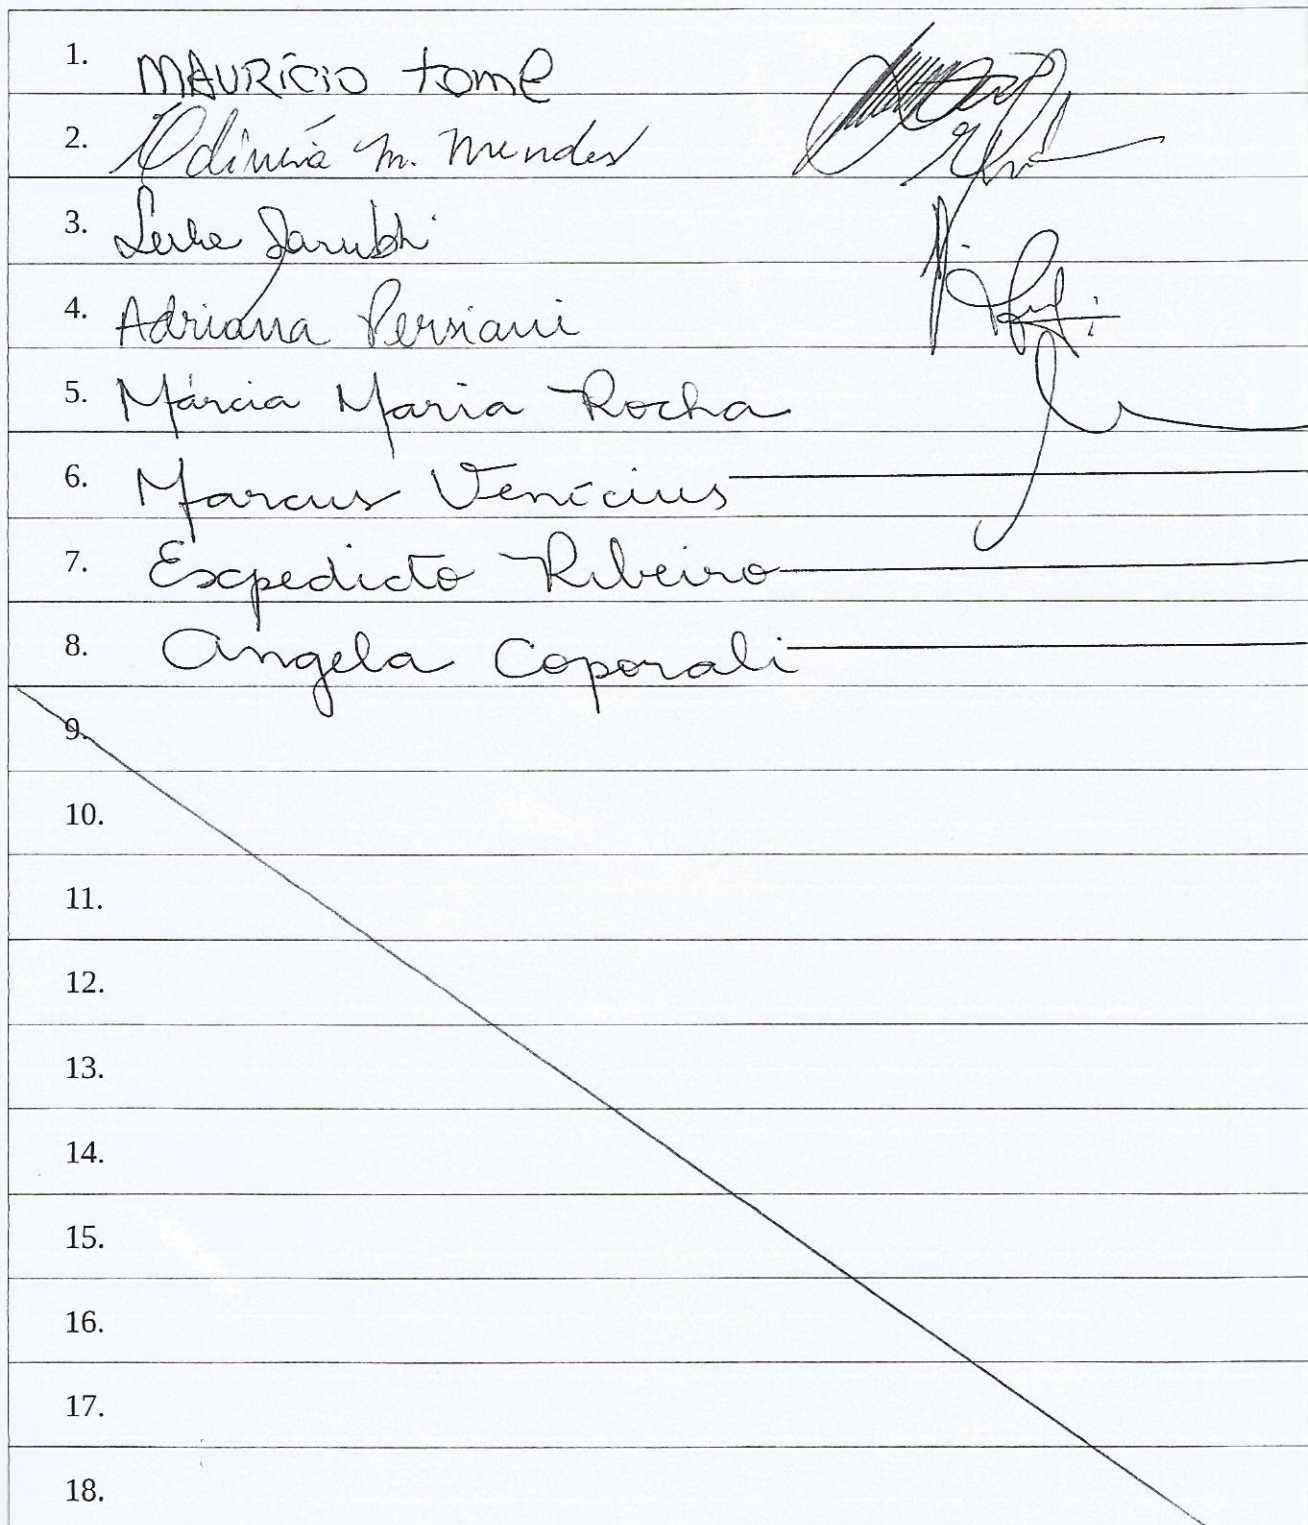 1. MAURÍCIO tomé
2. Odinéia m. mendes
3.
4. Adriana Persiani
5. Márcia Maria Rocha
6. Marcus Venícius
7. Expedicto Ribeiro
8. Angela Coporali
9.
10.
11.
12.
13.
14.
15.
16.
17.
18.